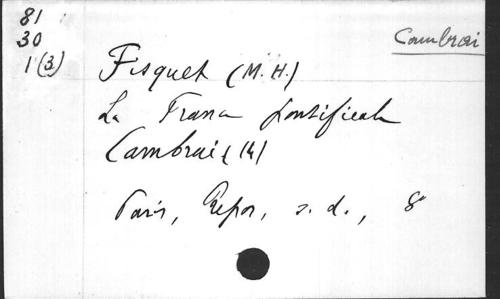 81
30
1(3)
Cambrai
Fisquet (M. H.)
La France pontificale
Cambrai (14)
Paris, Repos, s. d., 8°